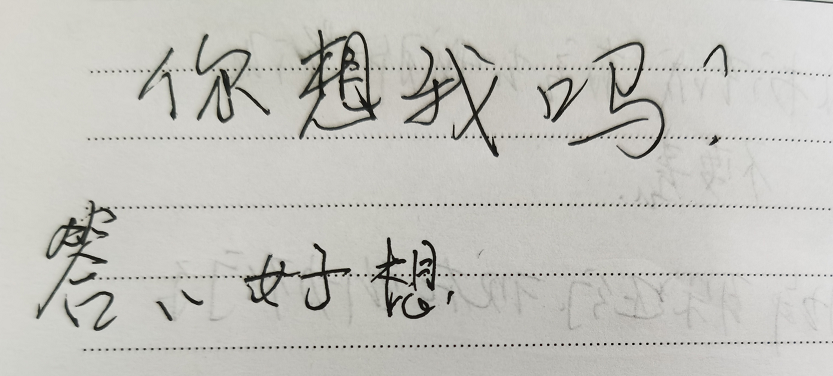 你想我吗?
答:好想.